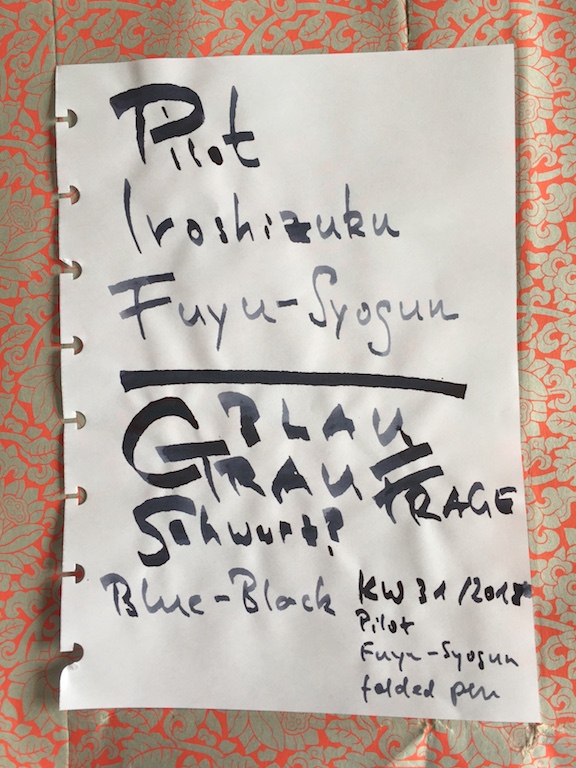 Pilot
Iroshizuku
Fuyu-Syogun
BLAU
GRAU FRAGE
Schwarz?
Blue-Black
KW 31/2018
Pilot
Fuyu-Syogun
folded pen